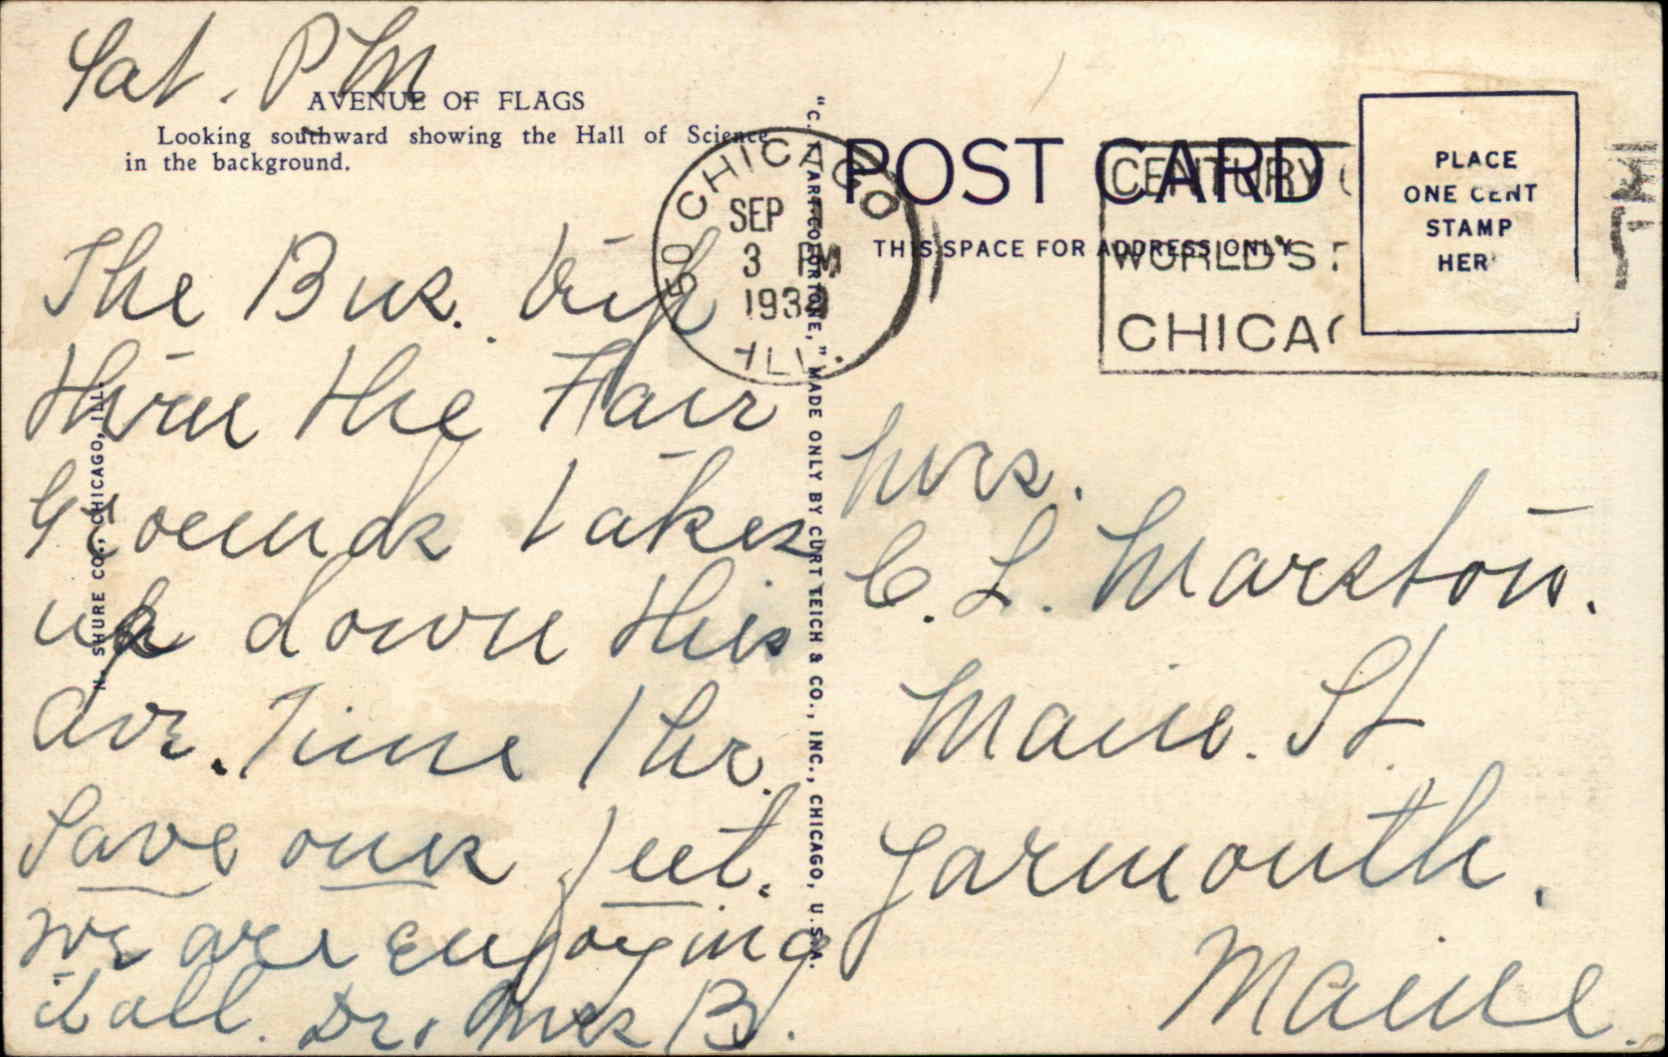 Sat. PM
AVENUE OF FLAGS
Looking southward showing the Hall of Science
in the background.
The Bus. trip
thru the Fair
Grounds takes
up down this
Ave. Time 1 hr.
Save our feet.
We are enjoying
it all. Dr. & Mrs B.
N. SHURE CO., CHICAGO, ILL.
"C. T. ART-COLORTONE," MADE ONLY BY CURT TEICH & CO., INC., CHICAGO, U.S.A.
CHICAGO
SEP
3 PM
ILL.
POST CARD
THIS SPACE FOR ADDRESS ONLY
CENTURY
WORLD'S
CHICAG
PLACE
ONE CENT
STAMP
HER
Mrs.
C. L. Marston.
Main. St.
Yarmouth.
Maine.